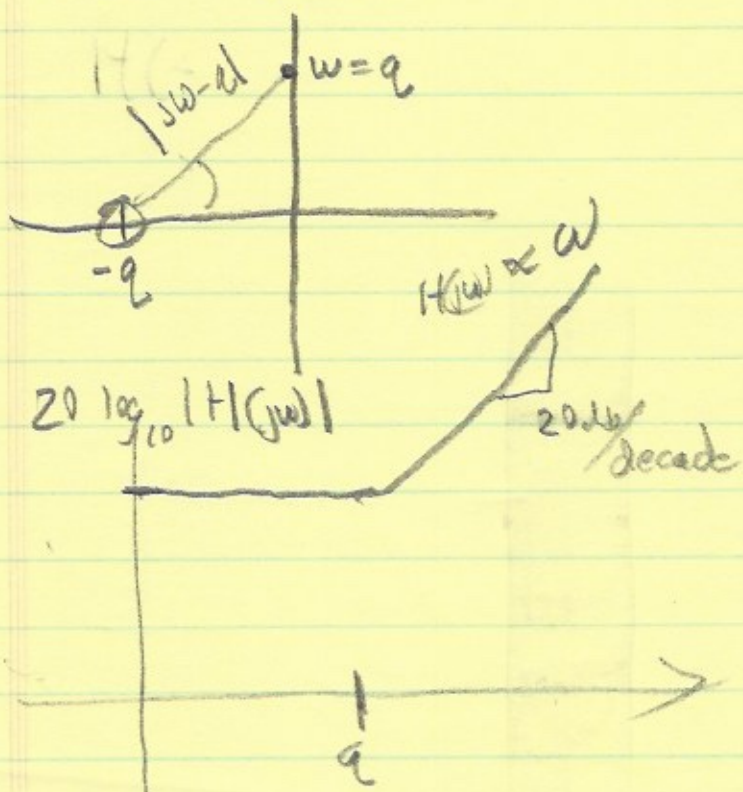 |jω-q|
ω=q
-q
H(jω) ∝ ω
20 log10 |H(jω)|
20 db/
decade
q